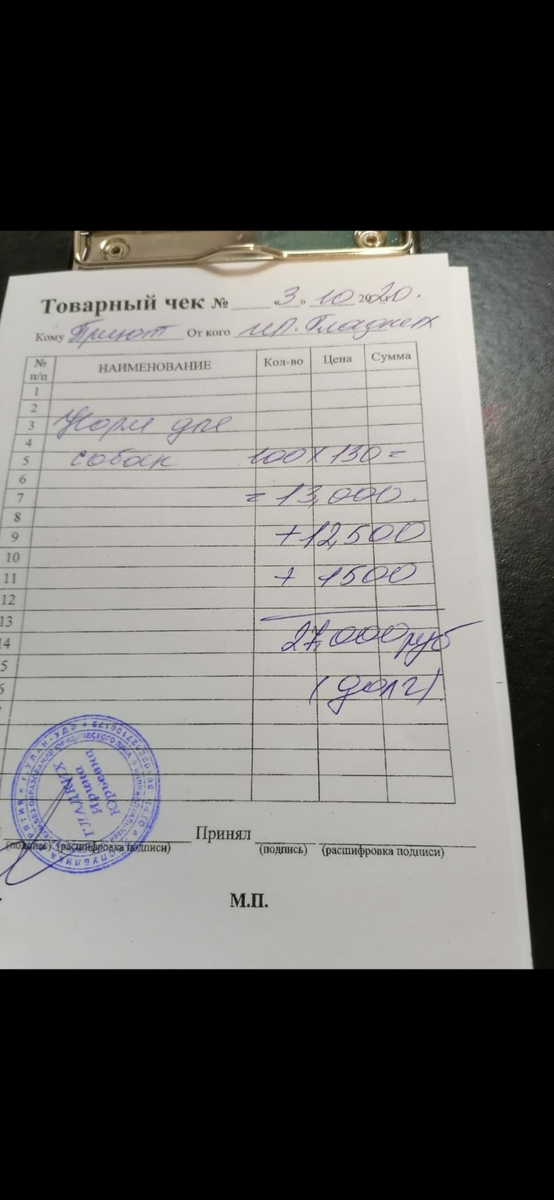 Товарный чек № ____ «3» 10 2020г.
Кому Приют От кого ИП. Гладких
№ п/п НАИМЕНОВАНИЕ Кол-во Цена Сумма
1
2
3 Корм для
4
5 собак 100 х 130 =
6
7 = 13,000.
8
9 + 12,500
10
11 + 1500
12
13
14 27,000 руб
5
6 (долг)
ГЛАДКИХ
Ирина
Юрьевна
Принял
(подпись) (расшифровка подписи) (подпись) (расшифровка подписи)
М.П.